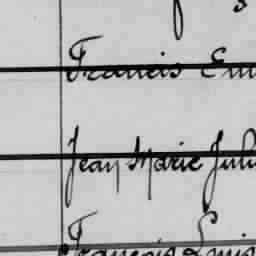 Francis Em
Jean Marie Juli
François Louis